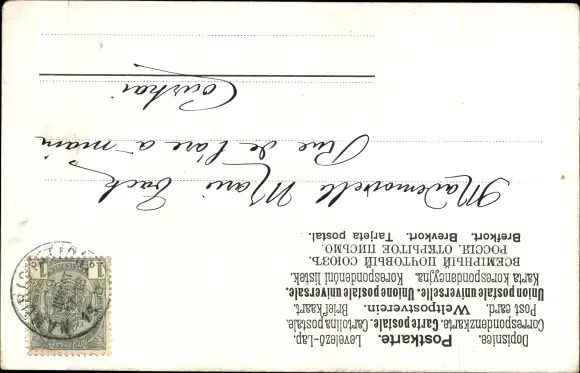 Dopisnice. Postkarte. Levelező-Lap.
Correspondenzkarte. Carte postale. Cartolina postale.
Post card. Weltpostverein. Briefkaart.
Union postale universelle. Unione postale universale.
Karta korespondencyjna. Korespondenční listek.
ВСЕМІРНЫЙ ПОЧТОВЫЙ СОЮЗЪ.
РОССІЯ. ОТКРЫТОЕ ПИСЬМО.
Brefkort. Brevkort. Tarjeta postal.
Mademoiselle Marie
Rue de l'arc a main
Courtrai
1 1